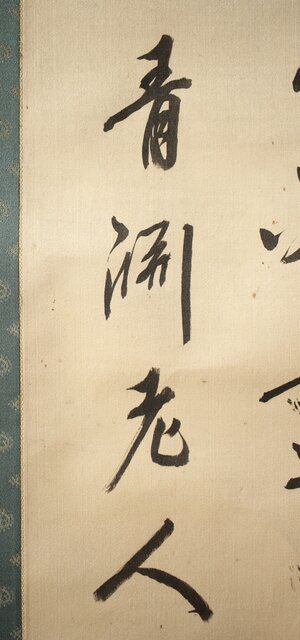 青淵老人